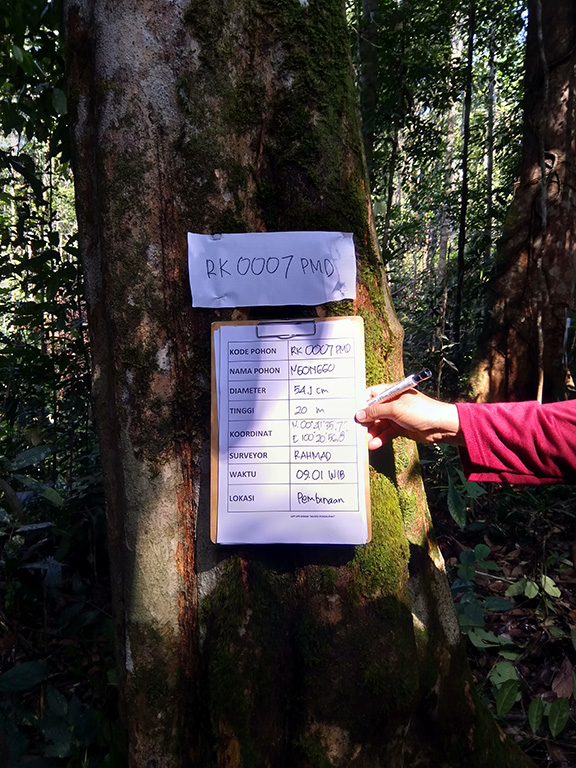 RK 0007 PMD
KODE POHON RK 0007 PMD
NAMA POHON MEONEGO
DIAMETER 54,1 cm
TINGGI 20 m
KOORDINAT N. 00°
E 100°20'
SURVEYOR RAHMAD
WAKTU 09.01 WIB
LOKASI Pembinaan